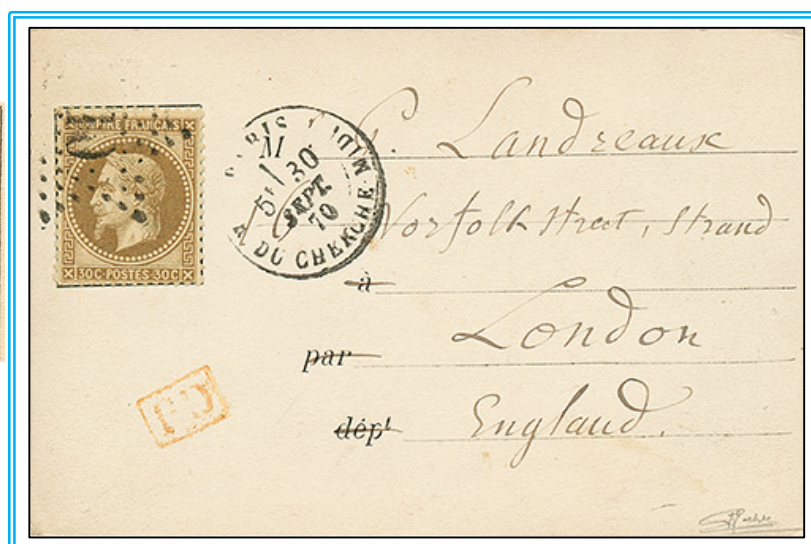 EMPIRE FRANÇAIS
30C·POSTES·30C
PARIS
R. DU CHERCHE MIDI
5
30
SEPT.
70
Landreaux
Norfolk Street, Strand
à
London
par
dépt England.
PD